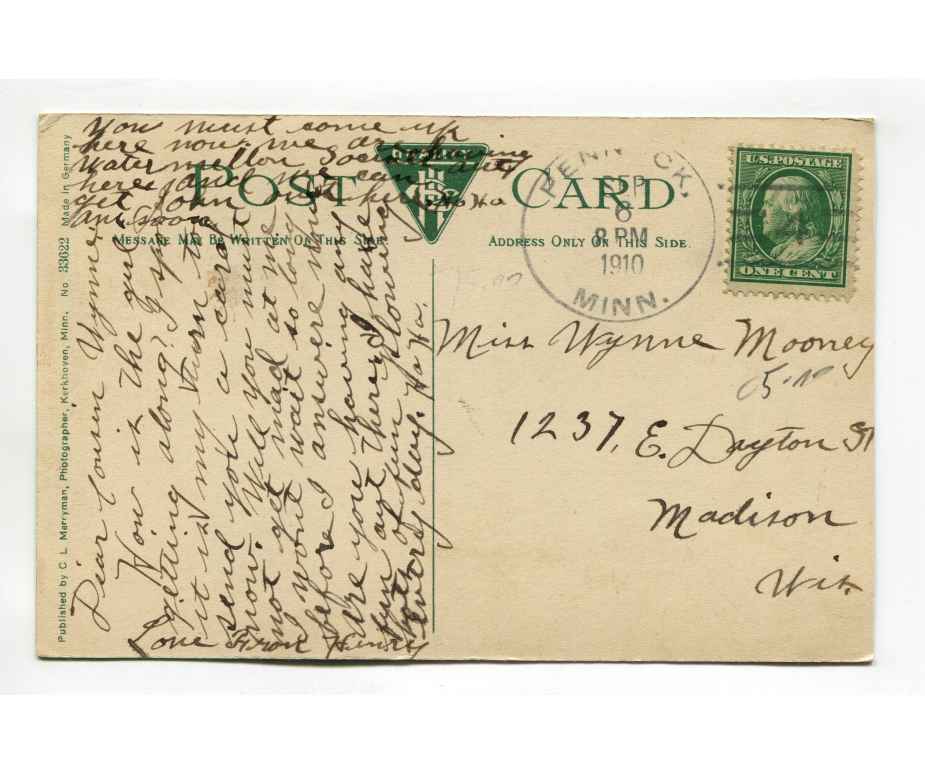 You must come up
here now. we are having
water mellon socials
here and we can
get John out here
POST CARD
MESSAGE MAY BE WRITTEN ON THIS SIDE
ADDRESS ONLY ON THIS SIDE.
Dear Cousin Wynne,
How is the girl
getting along? I spose
it is my turn to
send you a card
now. Will you must
not get mad at me
I wont wait so long
before I answere more
are you having any
fun out there I have
lots of fun
every day. Ha Ha.
Love From Henry
SEP
6
8 PM
1910
MINN.
U.S. POSTAGE
ONE CENT
Miss Wynne Mooney
1237, E. Dayton St
Madison
Wis.
Published by C. L. Merryman, Photographer, Kerkhoven, Minn. No. 33622 Made in Germany